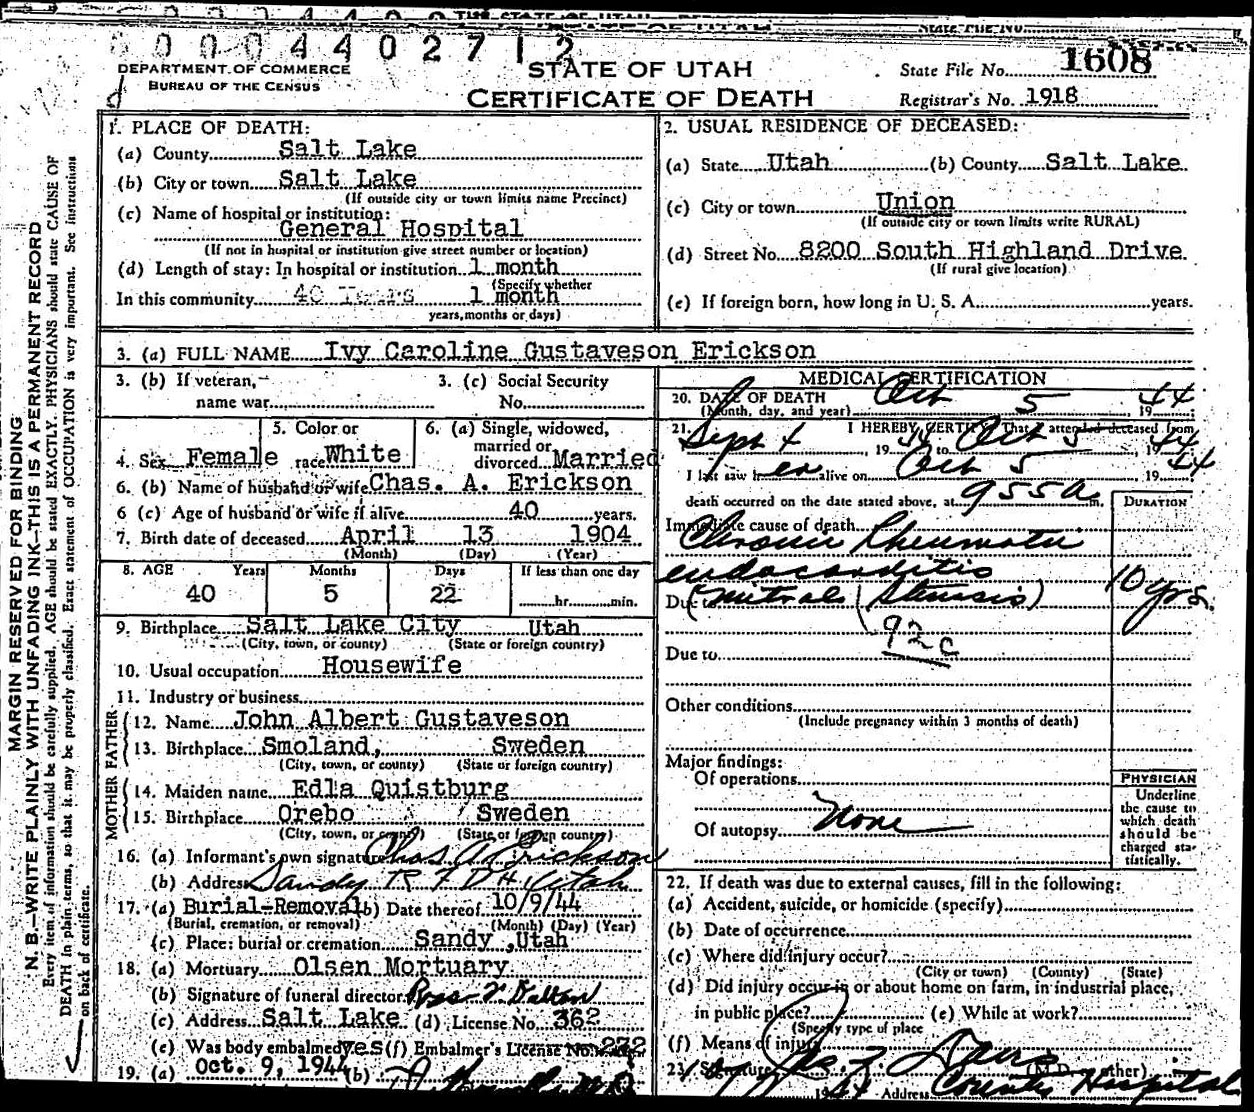 60004402712
DEPARTMENT OF COMMERCE
BUREAU OF THE CENSUS
STATE OF UTAH
CERTIFICATE OF DEATH
State File No. 1608
Registrar's No. 1918
MARGIN RESERVED FOR BINDING
N. B.—WRITE PLAINLY WITH UNFADING INK—THIS IS A PERMANENT RECORD
Every item of information should be carefully supplied. AGE should be stated EXACTLY. PHYSICIANS should state CAUSE OF
DEATH in plain terms, so that it may be properly classified. Exact statement of OCCUPATION is very important. See instructions
on back of certificate.
1. PLACE OF DEATH:
(a) County Salt Lake
(b) City or town Salt Lake
(If outside city or town limits name Precinct)
(c) Name of hospital or institution:
General Hospital
(If not in hospital or institution give street number or location)
(d) Length of stay: In hospital or institution 1 month
(Specify whether
In this community 40 Years 1 month
years, months or days)
2. USUAL RESIDENCE OF DECEASED:
(a) State Utah (b) County Salt Lake
(c) City or town Union
(If outside city or town limits write RURAL)
(d) Street No. 8200 South Highland Drive
(If rural give location)
(e) If foreign born, how long in U. S. A. years.
3. (a) FULL NAME Ivy Caroline Gustaveson Erickson
3. (b) If veteran, name war
3. (c) Social Security No.
4. Sex Female
5. Color or race White
6. (a) Single, widowed, married or divorced Married
6. (b) Name of husband or wife Chas. A. Erickson
6 (c) Age of husband or wife if alive 40 years.
7. Birth date of deceased April 13 1904
(Month) (Day) (Year)
8. AGE Years Months Days If less than one day
40 5 22 hr. min.
9. Birthplace Salt Lake City Utah
(City, town, or county) (State or foreign country)
10. Usual occupation Housewife
11. Industry or business
FATHER
12. Name John Albert Gustaveson
13. Birthplace Smoland, Sweden
(City, town, or county) (State or foreign country)
MOTHER
14. Maiden name Edla Quistburg
15. Birthplace Orebo Sweden
(City, town, or county) (State or foreign country)
16. (a) Informant's own signature Chas A. Erickson
(b) Address Sandy R F D #1 Utah
17. (a) Burial-Removal (b) Date thereof 10/9/44
(Burial, cremation, or removal) (Month) (Day) (Year)
(c) Place: burial or cremation Sandy, Utah
18. (a) Mortuary Olsen Mortuary
(b) Signature of funeral director
(c) Address Salt Lake (d) License No. 362
(e) Was body embalmed yes (f) Embalmer's License No. 232
19. (a) Oct. 9, 1944 (b)
MEDICAL CERTIFICATION
20. DATE OF DEATH (Month, day, and year) Oct 5 19 44
21. I HEREBY CERTIFY That I attended deceased from
Sept 4 19 44 to Oct 5 19 44
I last saw h er alive on Oct 5 19 44
death occurred on the date stated above, at 955 a m.
DURATION
Immediate cause of death
Chronic Rheumatic
endocarditis 10 yrs.
Due to (mitral stenosis)
92c
Due to
Other conditions
(Include pregnancy within 3 months of death)
Major findings:
Of operations
Of autopsy None
PHYSICIAN
Underline
the cause to
which death
should be
charged sta-
tistically.
22. If death was due to external causes, fill in the following:
(a) Accident, suicide, or homicide (specify)
(b) Date of occurrence
(c) Where did injury occur?
(City or town) (County) (State)
(d) Did injury occur in or about home on farm, in industrial place,
in public place? (e) While at work?
(Specify type of place
(f) Means of injury
23. Signature (M.D. or other)
Address County Hospital